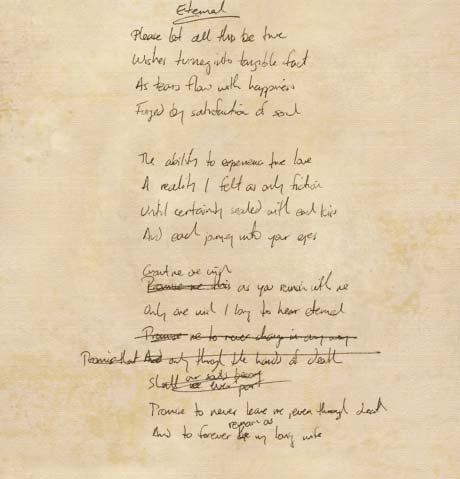 Eternal
Please let all this be true
Wishes turning into tangible fact
As tears flow with happiness
Forged by satisfaction of soul
The ability to experience true love
A reality I felt as only fiction
Until certainty sealed with each kiss
And each journey into your eyes
Grant me one wish
Promise me this as you remain with me
Only one wish I long to hear eternal
Promise me to never change in any way
Promise that And only through the hands of death
Shall our souls
we ever part
Promise to never leave me, even through death
remain as
And to forever be my loving wife